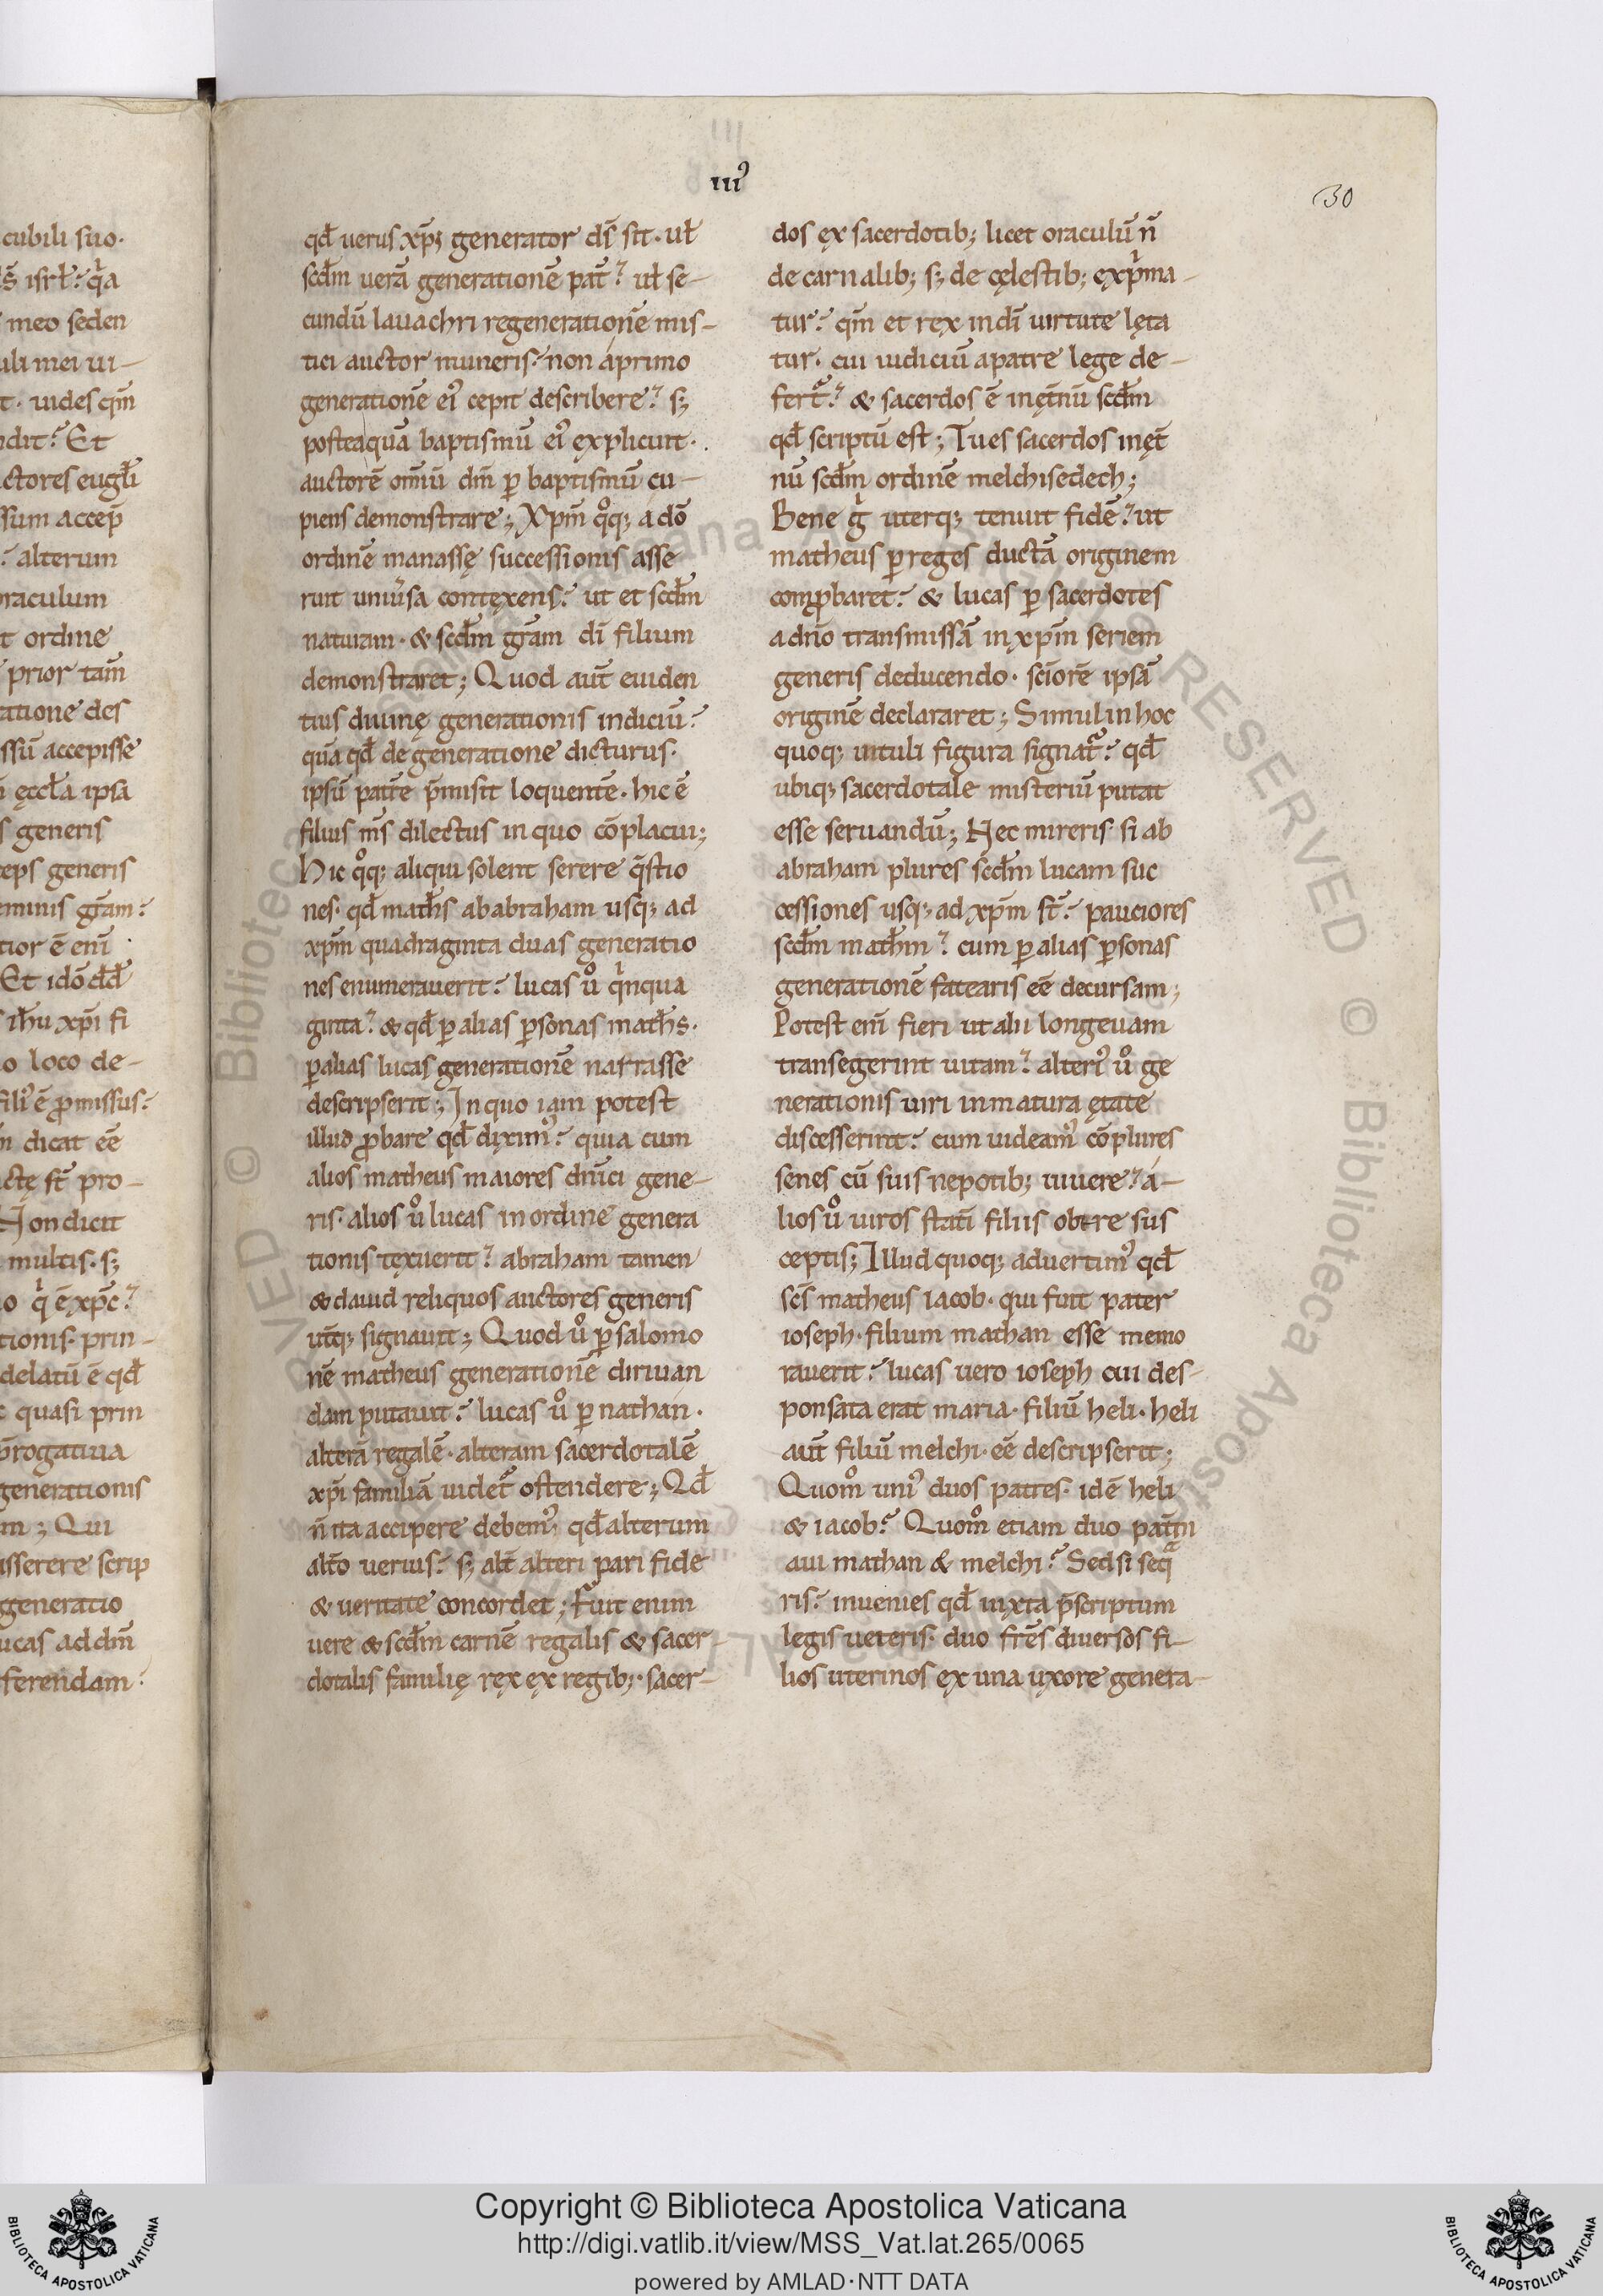 cubili suo·
s̄ isrł? qͥa
meo seden
uli mei ui-
t· uides qm̄
ndit? Et
ctores eugl̄i
ssum accep̄
? alterum
oraculum
t ordine
prior tam̄
ratione des
ssū accepisse
ęccl̄a ipsa
s generis
ceps generis
minis gr̄am?
tior ē eni̅
Et idō dd̄
ih̄u xp̄i fi
o loco de-
filiꝰ ē ꝓmissus?
m dicat eē
ctę st̄ pro-
Non dicit
multis· sꝫ
o qͥ ē xp̄c?
tionis· prin-
delatū ē qd̄
c quasi prin
p̄rogatiua
generationis
m; Qui
asserere scrip
ggeneratio
ucas ad dn̄m
ferendam?
IIIꝰ
30
qd̄ uerus xp̄ꝫ generator ds̄ sit· uł
scd̄m uerā generationē pat̄? uł se-
cundū lauachri regenerationē mis-
tici auctor muneris? non áprimo
generationē eiꝰ cepit describere? sꝫ
posteaquā baptismū eiꝰ explicuit·
auctorē omniū dm̄ ꝑ baptismū cu-
piens demonstrare; Xpm̄ qͦqꝫ a dō
ordinē manassę successionis asse
ruit uniūsa contexens? ut et scd̄m
naturam· & scd̄m gr̄am di̅ filium
demonstraret; Quod aut̄ euiden
tius diuinę generationis indiciū?
quā qd̄ de generatione dicturus·
ipsū patrē p̄misit loquentē· hic ē
filius ms̄ dilectus in quo cō placui;
Hic qͦqꝫ aliqui solent serere q̄stio
nes· qd̄ math̄s ab abraham usqꝫ ad
xpm̄ quadraginta duas generatio
nes enumerauerit? lucas uͦ qͥnqua
ginta? & qd̄ ꝑ alias ꝑsonas math̄s·
ꝑ alias lucas generationē narrasse
descripserit; In quo iam potest
illud ꝓbare qd̄ diximꝰ? quia cum
alios matheus maiores dn̄ici gene-
ris· alios uͦ lucas in ordine genera
tionis texuerit? abraham tamen
& dauid reliquos auctores generis
ut̄qꝫ signauit; Quod uͦ ꝑ salomo
nē matheus generationē diriuan
dam putauit? lucas uͦ ꝑ nathan·
alterā regalē· alteram sacerdotalē
xp̄i familiā uidet̄ ostendere; Qd̄
n̄ ita accipere debemꝰ· qd̄ alterum
alt̄o uerius? sꝫ alt̄ alteri pari fide
& ueritate concordet; Fuit enim
uere & scd̄m carnē regalis & sacer-
dotalis familię rex ex regibꝫ· sacer-
dos ex sacerdotibꝫ licet oraculū n̄
de carnalibꝫ sꝫ de cęlestibꝫ exprͥma-
tur? qm̄ et rex in di̅ uirtute lęta
tur· cui iudiciū apatre lege de-
fert̄? & sacerdos ē inęt̄nū scd̄m
qd̄ scriptū est; Tu es sacerdos inęt̄
nū scd̄m ordinē melchisedech;
Bene gͥ uterqꝫ tenuit fidē? ut
matheus ꝑ reges ductā originem
comꝓbaret? & lucas ꝑ sacerdotes
a dn̄o transmissā in xpm̄ seriem
generis deducendo· sc̄iorē ipsā
originē declararet; Simul in hoc
quoqꝫ uituli figura signat̄? qd̄
ubiqꝫ sacerdotale misteriū putat
esse seruandū; Nec mireris si ab
abraham plures scd̄m lucam suc
cessiones usqꝫ ad xpm̄ st̄? pauciores
scd̄m math̄m? cum ꝑ alias ꝑsonas
generationē fatearis eē decursam;
Potest eni̅ fieri ut alii longeuam
transegerint uitam? alteriꝰ uͦ ge
nerationis uiri inmatura ętate
discesserint? cum uideamꝰ cō plures
senes cū suis nepotibꝫ uiuere? á-
lios uͦ uiros stati̅ filiis obire sus
ceptis; Illud quoqꝫ aduertimꝰ qd̄
sc̄s matheus iacob· qui fuit pater
ioseph· filium mathan esse memo
rauerit? lucas uero ioseph cui des-
ponsata erat maria· filiū heli· heli
aut̄ filiū melchi· eē descripserit;
Quomͦ uniꝰ duos patres· idē heli
& iacob? Quomͦ etiam duo pat̄rn
aui mathan & melchi? Sed si seq̄
ris? inuenies qd̄ iuxta p̄scriptum
legis ueteris· duo fr̄es diuersos fi-
lios uterinos ex una uxore genera-
Copyright © Biblioteca Apostolica Vaticana
http://digi.vatlib.it/view/MSS_Vat.lat.265/0065
powered by AMLAD·NTT DATA
BIBLIOTECA APOSTOLICA VATICANA
BIBLIOTECA APOSTOLICA VATICANA